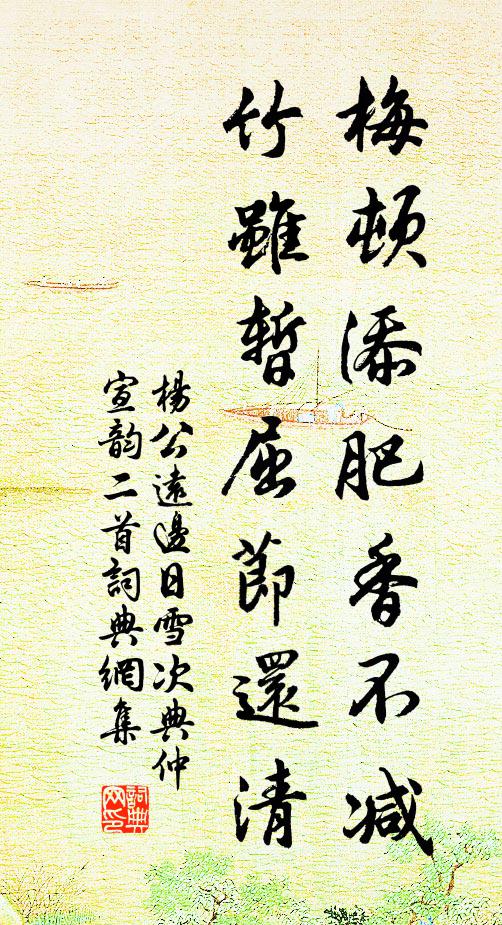 梅頓添肥香不减
竹雖暫屈節還清
楊公遠邊日雪次典仲
宣韵二首詞典網集
詞典
网印